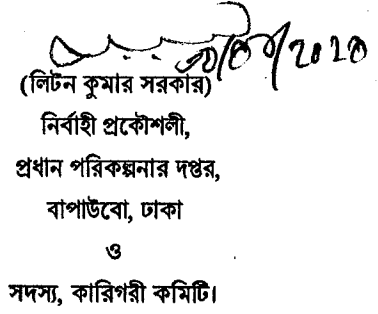 (লিটন কুমার সরকার)
নির্বাহী প্রকৌশলী,
প্রধান পরিকল্পনার দপ্তর,
বাপাউবো, ঢাকা
ও
সদস্য, কারিগরী কমিটি।